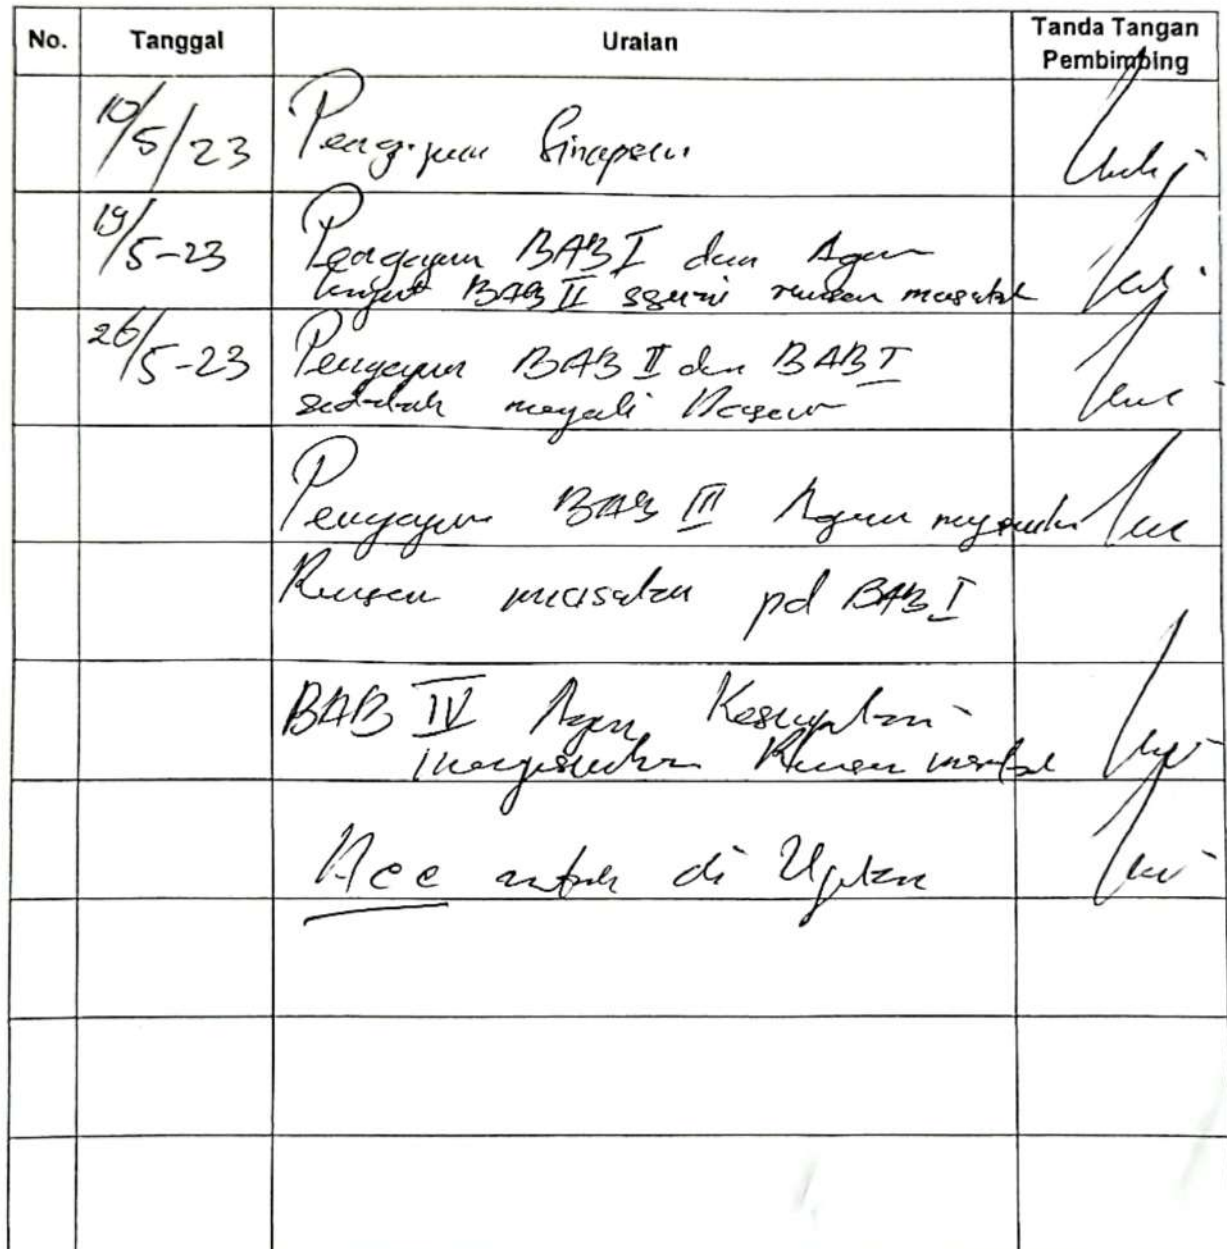 No. Tanggal Uraian Tanda Tangan
Pembimbing
10/5/23 Pengajuan Sinopsis
19/5-23 Pengajuan BAB I dan Agar
lanjut BAB II sesuai rumusan masalah
26/5-23 Pengajuan BAB II dan BAB I
sudah
Pengajuan BAB III Agar
Rumusan masalah pd BAB I
BAB IV Agar Kesimpulan
Rumusan masalah
Acc untuk di Ujikan